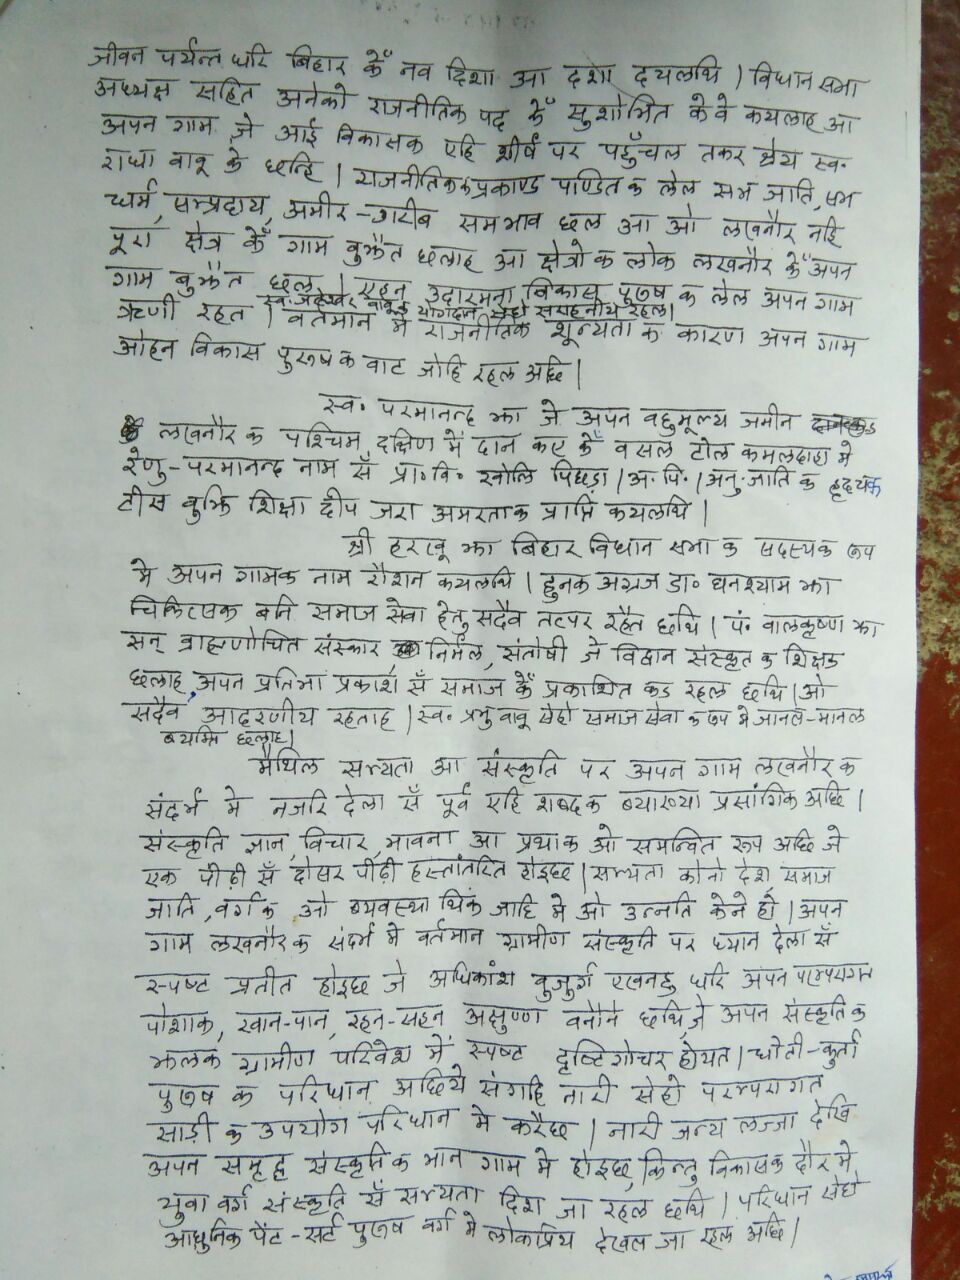 जीवन पर्यन्त धरि बिहार केँ नव दिशा आ दशा दयलथि । विधान सभा
अध्यक्ष सहित अनेको राजनीतिक पद केँ सुशोभित केवे कयलाह आ
अपन गाम जे आई विकासक एहि शीर्ष पर पहुँचल तकर श्रेय स्व॰
राधा बाबू के छन्हि । राजनीतिक प्रकाण्ड पण्डित क लेल सभ जाति, सभ
धर्म, सम्प्रदाय, अमीर-गरीब समभाव छल आ ओ लखनौर नहि
पूरा क्षेत्र केँ गाम बुझैत छलाह आ क्षेत्रो क लोक लखनौर केँ अपन
गाम बुझैत छल । एहन उदारमना विकास पुरुष क लेल अपन गाम
स्व॰ बाबूक योगदान सेहो सराहनीय रहल।
ऋणी रहत । वर्तमान मे राजनीतिक शून्यता क कारण अपन गाम
ओहन विकास पुरुष क बाट जोहि रहल अछि ।
स्व॰ परमानन्द झा जे अपन बहुमूल्य जमीन
लखनौर क पश्चिम दक्षिण में दान कए केँ वसल टोल कमलदाहा मे
रेणु-परमानन्द नाम सँ प्रा॰ वि॰ खोलि पिछड़ा । अ. पि. । अनु. जाति क हृदयक
टीस बुझि शिक्षा दीप जरा अमरताक प्राप्ति कयलथि ।
श्री हरखू झा बिहार विधान सभा क सदस्यक रूप
मे अपन गामक नाम रौशन कयलथि । हुनक अग्रज डा॰ घनश्याम झा
चिकित्सक बनि समाज सेवा हेतु सदैव तत्पर रहैत छथि । पं॰ वालकृष्ण झा
सन् ब्राह्मणोचित संस्कार निर्मल, संतोषी जे विद्वान संस्कृत क शिक्षक
छलाह, अपन प्रतिभा प्रकाश सँ समाज केँ प्रकाशित कऽ रहल छथि । ओ
सदैव आदरणीय रहताह । स्व॰ प्रभु बाबू सेहो समाज सेवा क रूप मे जानल-मानल
व्यक्ति छलाह।
मैथिल सभ्यता आ संस्कृति पर अपन गाम लखनौर क
संदर्भ मे नजरि देला सँ पूर्व एहि शब्द क ब्याख्या प्रसांगिक अछि ।
संस्कृति ज्ञान, विचार, भावना आ प्रथा क ओ समन्वित रूप अछि जे
एक पीढ़ी सँ दोसर पीढ़ी हस्तांतरित होइछ । सभ्यता कोनो देश समाज
जाति, वर्ग क ओ ब्यवस्था थिक जाहि मे ओ उन्नति केने हो । अपन
गाम लखनौर क संदर्भ मे वर्तमान ग्रामीण संस्कृति पर ध्यान देला सँ
स्पष्ट प्रतीत होइछ जे अधिकांश बुजुर्ग एखनहु धरि अपन परम्परागत
पोशाक, खान-पान, रहन-सहन अक्षुण्ण बनौने छथि, जे अपन संस्कृति क
झलक ग्रामीण परिवेश में स्पष्ट दृष्टिगोचर होयत । धोती-कुर्ता
पुरुष क परिधान अछिये संगहि नारी सेहो परम्परागत
साड़ी क उपयोग परिधान मे करैछ । नारी जन्य लज्जा देखि
अपन समृद्ध संस्कृति क भान गाम मे होइछ, किन्तु विकासक दौर मे
युवा वर्ग संस्कृति सँ सभ्यता दिश जा रहल छथि । परिधान सेहो
आधुनिक पेंट-सर्ट पुरुष वर्ग मे लोकप्रिय देखल जा रहल अछि ।